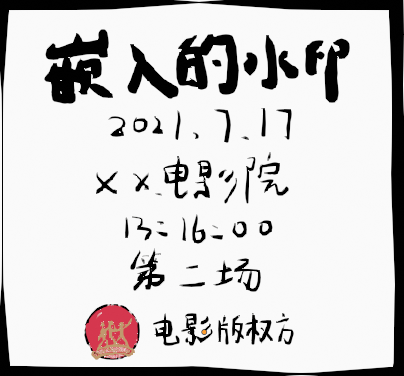 嵌入的水印
2021.7.17
××电影院
13:16:00
第二场
电影版权方